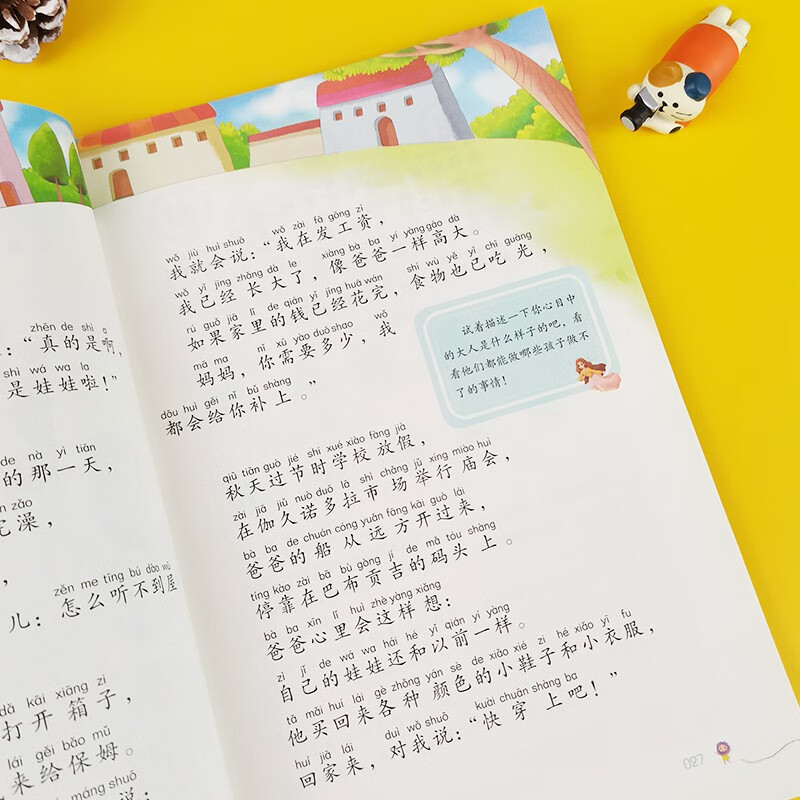 zhēn de shì a
：“真的是啊，
shì wá wa la
是娃娃啦！”
de nà yì tiān
的那一天，
zǎo
完澡，
，
zěn me tīng bú dào wū
儿：怎么听不到屋
dǎ kāi xiāng zi
打开箱子，
lái gěi bǎo mǔ
来给保姆。
máng shuō
说：
wǒ jiù huì shuō wǒ zài fā gōng zī
我就会说：“我在发工资，
wǒ yǐ jīng zhǎng dà le xiàng bà ba yí yàng gāo dà
我已经长大了，像爸爸一样高大。
rú guǒ jiā lǐ de qián yǐ jīng huā wán shí wù yě yǐ chī guāng
如果家里的钱已经花完，食物也已吃光，
mā ma nǐ xū yào duō shao wǒ
妈妈，你需要多少，我
dōu huì gěi nǐ bǔ shàng
都会给你补上。”
试着描述一下你心目中
的大人是什么样子的吧，看
看他们都能做哪些孩子做不
了的事情！
qiū tiān guò jié shí xué xiào fàng jià
秋天过节时学校放假，
zài jiā jiǔ nuò duō lā shì chǎng jǔ xíng miào huì
在伽久诺多拉市场举行庙会，
bà ba de chuán cóng yuǎn fāng kāi guò lái
爸爸的船从远方开过来，
tíng kào zài bā bù gòng jí de mǎ tóu shàng
停靠在巴布贡吉的码头上。
bà ba xīn lǐ huì zhè yàng xiǎng
爸爸心里会这样想：
zì jǐ de wá wa hái hé yǐ qián yí yàng
自己的娃娃还和以前一样。
tā mǎi huí lái gè zhǒng yán sè de xiǎo xié zi hé xiǎo yī fu
他买回来各种颜色的小鞋子和小衣服，
huí jiā lái duì wǒ shuō kuài chuān shàng ba
回家来，对我说：“快穿上吧！”
027